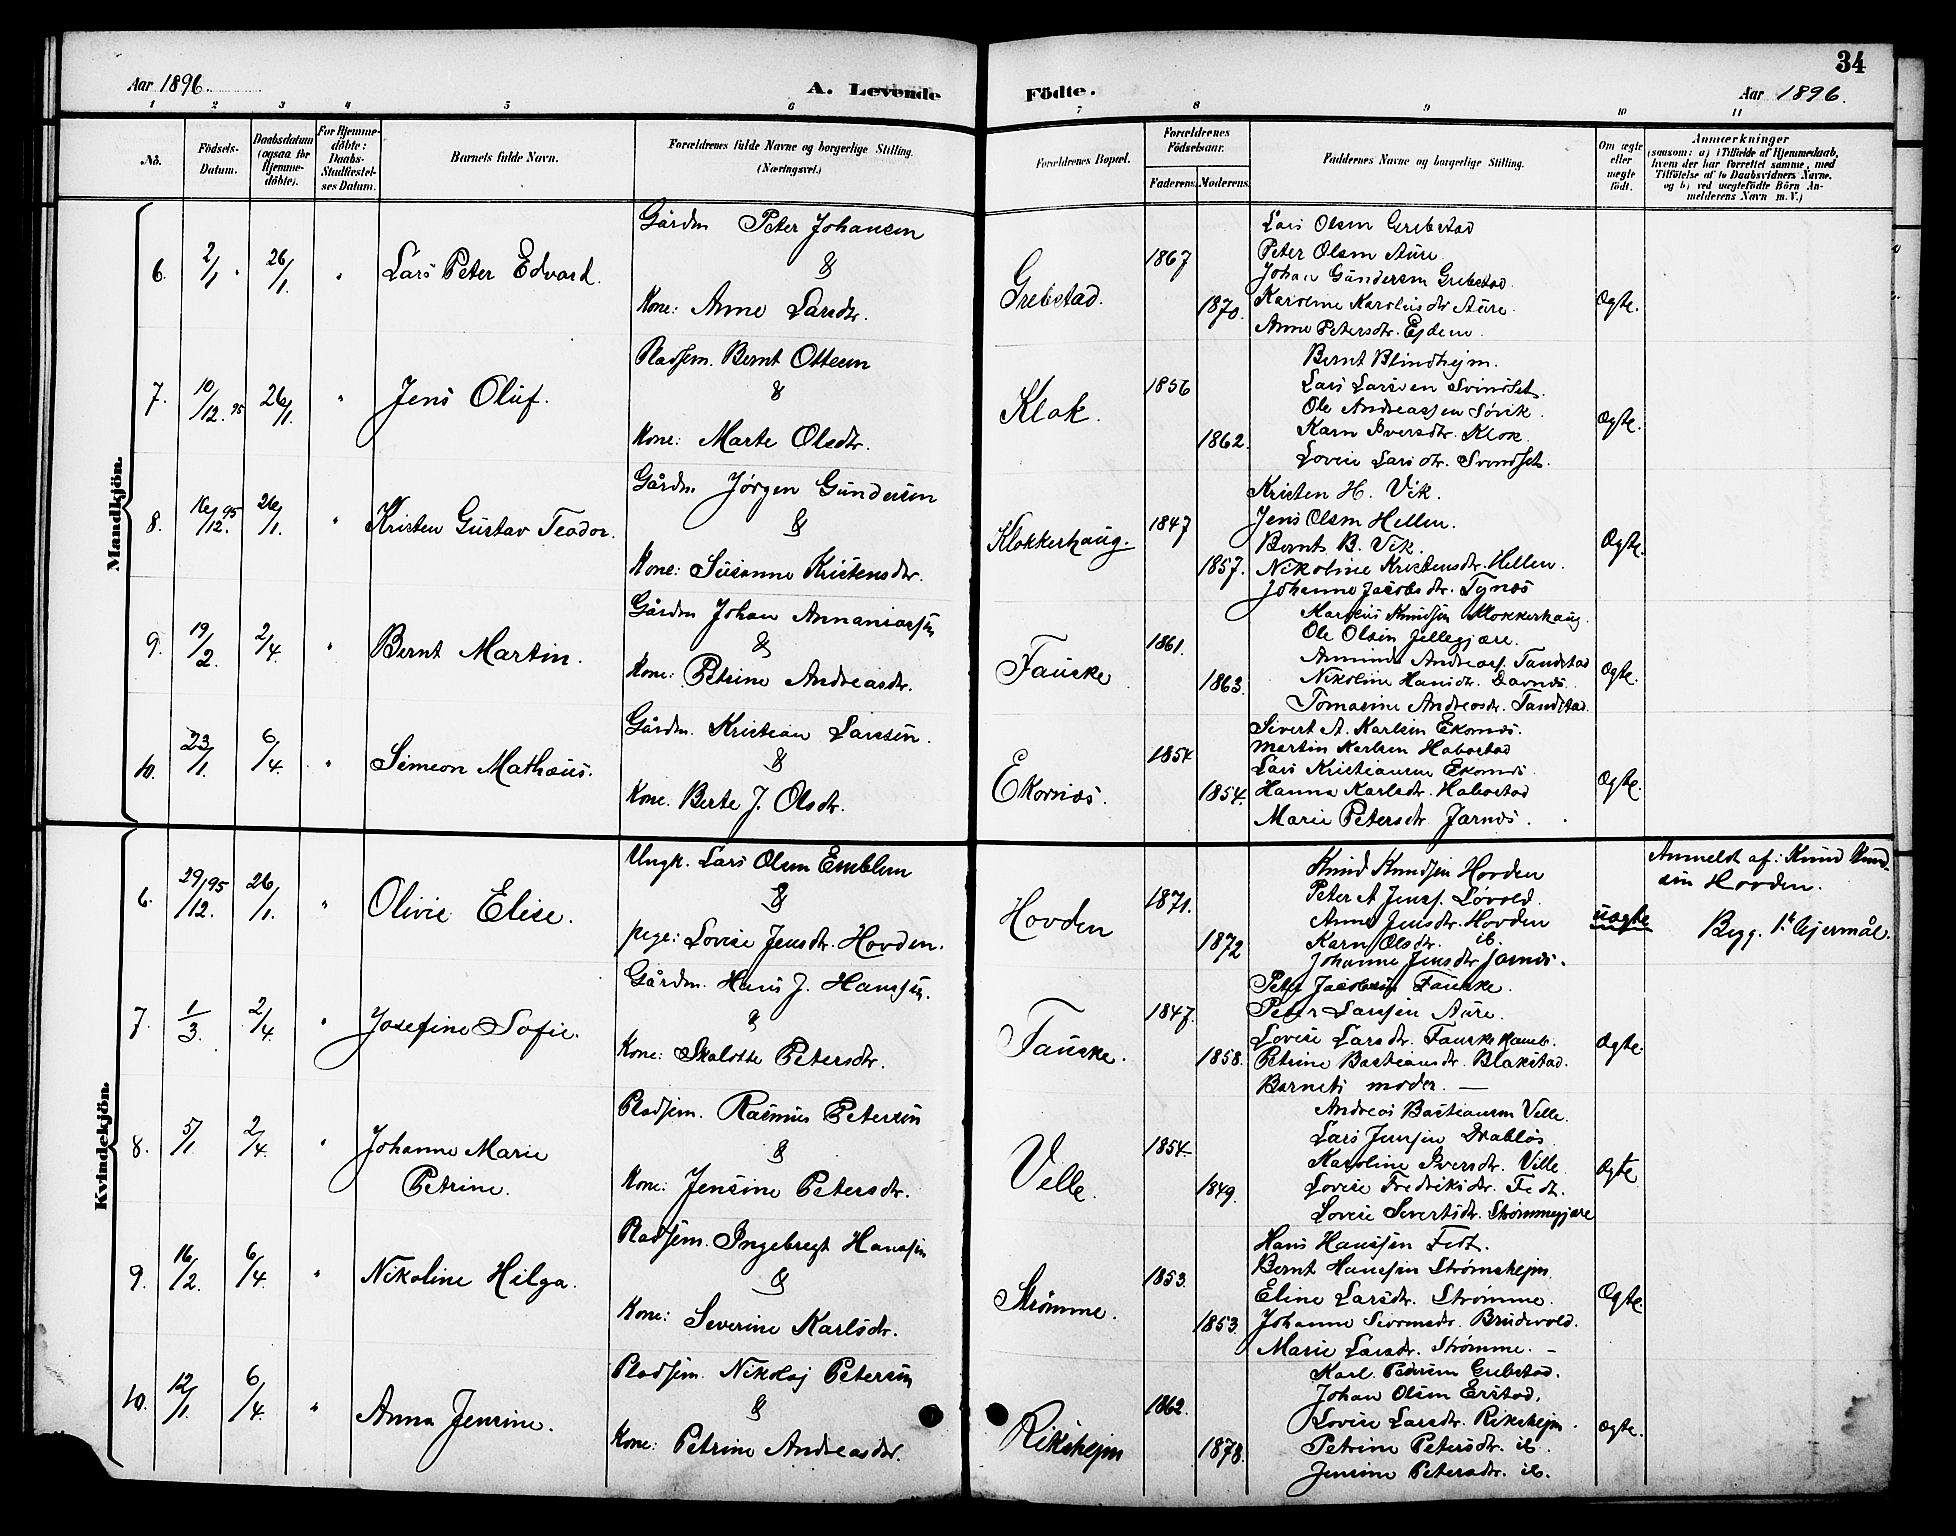 34
Aar 1896.
A. Levende
Födte.
Aar 1896.
1 2 3 4 5 6 7 8 9 10 11
No.
Födsels-Datum.
Daabsdatum (ogsaa for Hjemme-döbte).
For Hjemme-döbte: Daabs-Stadfæstel-ses Datum.
Barnets fulde Navn.
Forældrenes fulde Navne og borgerlige Stilling.
(Næringsvei.)
Forældrenes Bopæl.
Forældrenes Födselsaar.
Faderens. Moderens.
Faddernes Navne og borgerlige Stilling.
Om ægte eller uægte födt.
Anmærkninger
(saasom: a) i Tilfælde af Hjemmedaab, hvem der har forrettet samme, med Tilföielse af to Daabsvidners Navne, og b) ved uægtefödte Börn An-melderens Navn m. V.)
Mandkjön.
6. 2/1 26/1. " Lars Peter Edvard.
Gårdm Peter Johansen
&
Kone: Anne Larsdtr.
Grebstad.
1867
1870.
Lars Olsen Grebstad
Peter Olsen Aure.
Johan Gundersen Grebstad
Karoline Karolusdtr Aure.
Anne Petersdtr. Eidem.
Ægte.
7. 10/12. 95 26/1. " Jens Oluf.
Pladsem. Bernt Ottesen
&
Kone: Marte Olsdtr.
Klok.
1856
1862.
Bernt Blindhejm.
Lars Larssen Svindset.
Ole Andreassen Søvik.
Karn Iversdtr. Klok.
Lovise Larsdtr. Svindset.
Ægte.
8. 16/12. 95 26/1. " Kristen Gustav Teodor.
Gårdm Jørgen Gundersen
&
Kone: Susanne Kristensdtr.
Klokkerhaug.
1847
1857.
Kristen H. Vik.
Jens Olsen Hellen.
Bernt B. Vik.
Nikoline Kristensdtr. Hellen.
Johanne Jacobsdtr. Tynes
Ægte.
9. 19/2. 2/4. " Bernt Martin.
Gårdm Johan Annaniassen
&
Kone: Petrine Andreasdtr.
Fauske
1861.
1863.
Knudsen Klokkerhaug.
Ole Olsen
Andreas. Tandstad
Nikoline Hansdtr.
Tomasine Andreasdtr. Tandstad.
Ægte.
10. 23/1. 6/4. " Simeon Mathæus.
Gårdm. Kristian Larssen.
&
Kone. Berte J. Olsdtr.
Ekornæs.
1854
1854.
Sivert A. Karlsen Ekornæs.
Martin Karlsen Habostad
Lars Kristiansen Ekornæs.
Hanna Karlsdtr. Habostad
Marie Petersdtr Jarnæs.
Ægte.
Kvindekjön.
6. 29/12. 95 26/1. " Olivie Elise.
Ungk. Lars Olsen Emblem
&
pige: Lovise Jensdtr. Hovden.
Hovden
1871.
1872
Knud Knudsen Hovden
Peter A Jenss. Løvold.
Anne Jensdtr. Hovden
Karn Olsdtr. ib.
Johanne Jensdtr Jarnæs.
uægte
Anmeldt af: Knud Knud-
sen Hovden.
Beg. 1ste Lejermål.
7. 1/3. 2/4. " Josefine Sofie.
Gårdm. Hans J. Hanssen.
&
Kone: Skalotte Petersdtr.
Fauske.
1847.
1858.
Peter Jacobsen Fauske.
Peter Larssen Aure.
Lovise Larsdtr. Fauske
Petrine Bastiansdtr. Blakstad.
Barnets moder. —
Ægte.
8. 5/1 2/4. " Johanne Marie
Petrine.
Pladsem. Rasmus Petersen
&
Kone: Jensine Petersdtr.
Velle.
1854.
1849.
Andreas Bastiansen Velle.
Lars Jenssen Drabløs.
Karoline Iversdtr. Ville.
Lovise Fredriksdtr. Fedt.
Lovise Sivertsdtr. Strømmegjære
Ægte
9. 16/2. 6/4. " Nikoline Hilga.
Pladsem. Ingebregt Hanssen
&
Kone: Severine Karlsdtr.
Strømme.
1853.
1853.
Hans Hanssen Fedt.
Bernt Hanssen Strømshejm
Eline Larsdtr. Strømme.
Johanne Brudevold.
Marie Larsdtr. Strømme. –
Ægte.
10. 12/1. 6/4. " Anna Jensine.
Pladsem. Nikolaj Petersen
&
Kone: Petrine Andreasdtr.
Rikshejm
1862.
1878.
Karl. Pedersen Grebstad.
Johan Olsen Erstad.
Lovise Larsdtr. Rikshejm.
Petrine Petersdtr. ib.
Jensine Petersdtr. ib.
Ægte.